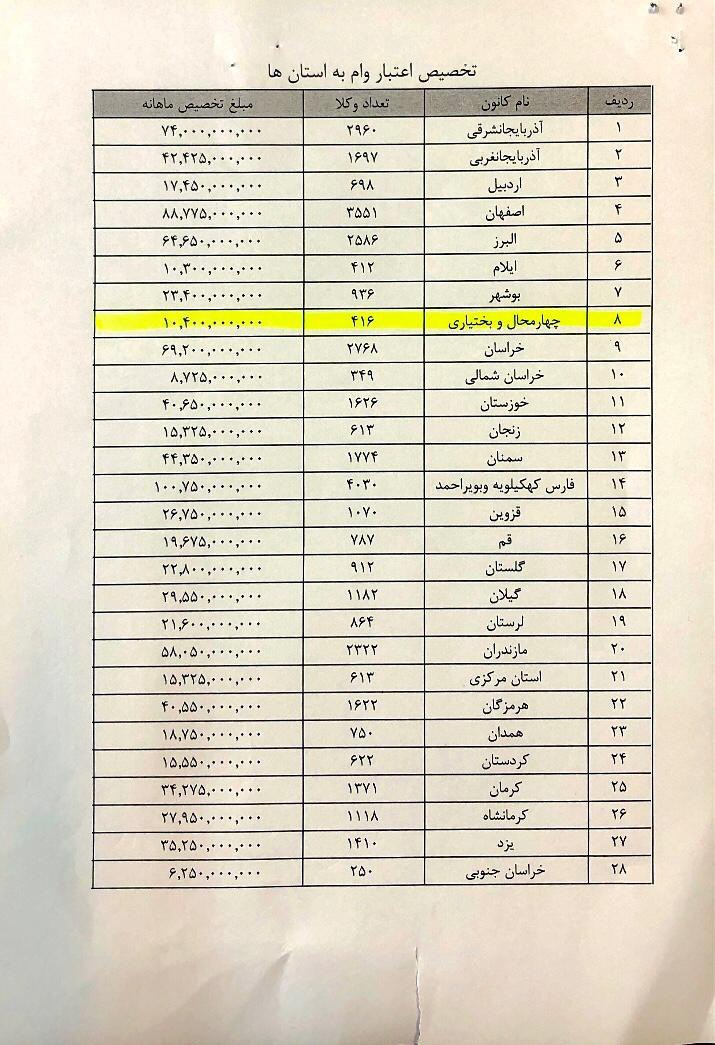 تخصیص اعتبار وام به استان ها
ردیف نام کانون تعداد وکلا مبلغ تخصیص ماهانه
۱ آذربایجانشرقی ۲۹۶۰ ۷۴,۰۰۰,۰۰۰,۰۰۰
۲ آذربایجانغربی ۱۶۹۷ ۴۲,۴۲۵,۰۰۰,۰۰۰
۳ اردبیل ۶۹۸ ۱۷,۴۵۰,۰۰۰,۰۰۰
۴ اصفهان ۳۵۵۱ ۸۸,۷۷۵,۰۰۰,۰۰۰
۵ البرز ۲۵۸۶ ۶۴,۶۵۰,۰۰۰,۰۰۰
۶ ایلام ۴۱۲ ۱۰,۳۰۰,۰۰۰,۰۰۰
۷ بوشهر ۹۳۶ ۲۳,۴۰۰,۰۰۰,۰۰۰
۸ چهارمحال و بختیاری ۴۱۶ ۱۰,۴۰۰,۰۰۰,۰۰۰
۹ خراسان ۲۷۶۸ ۶۹,۲۰۰,۰۰۰,۰۰۰
۱۰ خراسان شمالی ۳۴۹ ۸,۷۲۵,۰۰۰,۰۰۰
۱۱ خوزستان ۱۶۲۶ ۴۰,۶۵۰,۰۰۰,۰۰۰
۱۲ زنجان ۶۱۳ ۱۵,۳۲۵,۰۰۰,۰۰۰
۱۳ سمنان ۱۷۷۴ ۴۴,۳۵۰,۰۰۰,۰۰۰
۱۴ فارس کهکیلویه وبویراحمد ۴۰۳۰ ۱۰۰,۷۵۰,۰۰۰,۰۰۰
۱۵ قزوین ۱۰۷۰ ۲۶,۷۵۰,۰۰۰,۰۰۰
۱۶ قم ۷۸۷ ۱۹,۶۷۵,۰۰۰,۰۰۰
۱۷ گلستان ۹۱۲ ۲۲,۸۰۰,۰۰۰,۰۰۰
۱۸ گیلان ۱۱۸۲ ۲۹,۵۵۰,۰۰۰,۰۰۰
۱۹ لرستان ۸۶۴ ۲۱,۶۰۰,۰۰۰,۰۰۰
۲۰ مازندران ۲۳۲۲ ۵۸,۰۵۰,۰۰۰,۰۰۰
۲۱ استان مرکزی ۶۱۳ ۱۵,۳۲۵,۰۰۰,۰۰۰
۲۲ هرمزگان ۱۶۲۲ ۴۰,۵۵۰,۰۰۰,۰۰۰
۲۳ همدان ۷۵۰ ۱۸,۷۵۰,۰۰۰,۰۰۰
۲۴ کردستان ۶۲۲ ۱۵,۵۵۰,۰۰۰,۰۰۰
۲۵ کرمان ۱۳۷۱ ۳۴,۲۷۵,۰۰۰,۰۰۰
۲۶ کرمانشاه ۱۱۱۸ ۲۷,۹۵۰,۰۰۰,۰۰۰
۲۷ یزد ۱۴۱۰ ۳۵,۲۵۰,۰۰۰,۰۰۰
۲۸ خراسان جنوبی ۲۵۰ ۶,۲۵۰,۰۰۰,۰۰۰